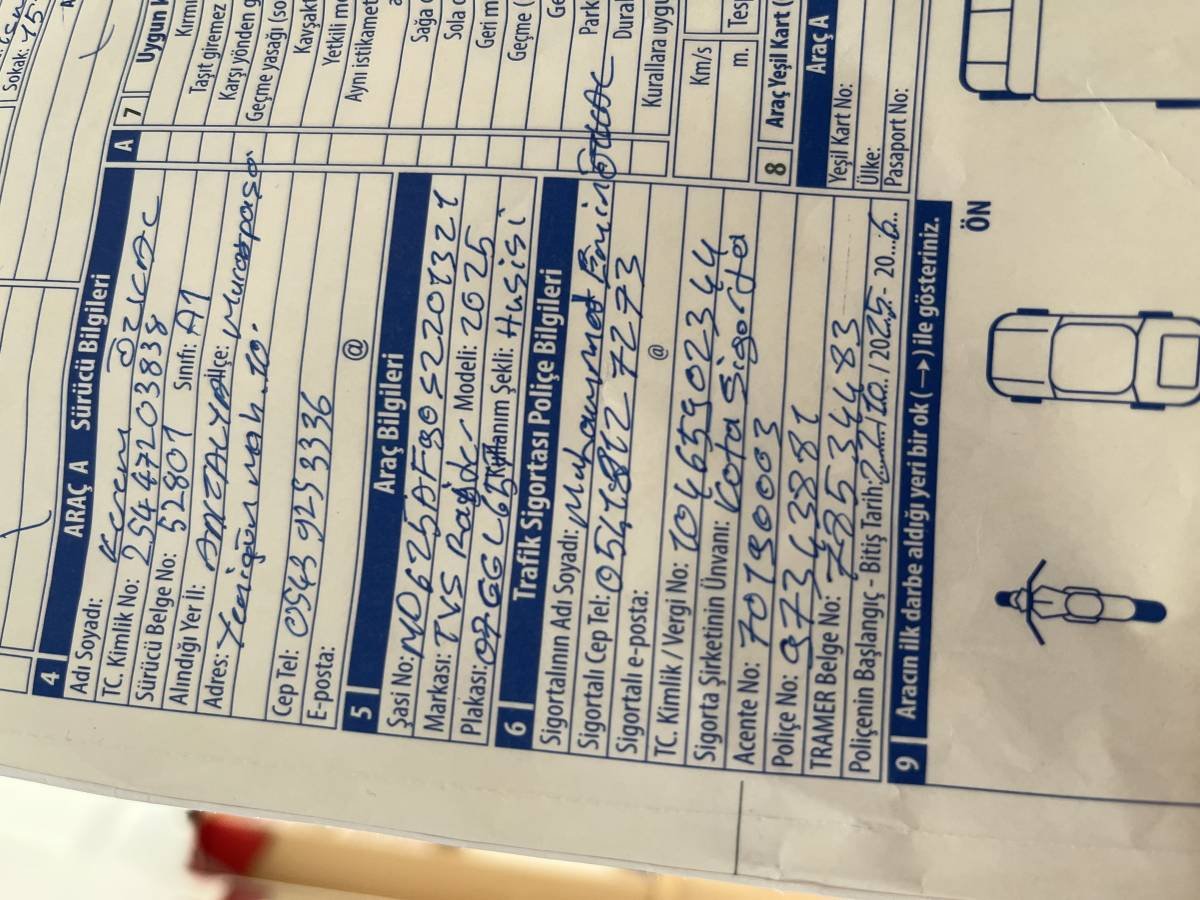 Sokak: 15.
4 ARAÇ A Sürücü Bilgileri
Adı Soyadı: Kerem ÖZSICAC
TC. Kimlik No: 254447203838
Sürücü Belge No: 52801 Sınıfı: A1
Alındığı Yer İl: ANTALYA İlçe: Muratpaşa
Adres: Yenigün mah. 10.
Cep Tel: 0543 925 3336
E-posta: @
5 Araç Bilgileri
Şasi No: MD625AF90S2201321
Markası: TVS Raider Modeli: 2025
Plakası: 07 GGL 65 Kullanım Şekli: Hususi
6 Trafik Sigortası Poliçe Bilgileri
Sigortalının Adı Soyadı: Muhammet Emin
Sigortalı Cep Tel: 0541 812 7273
Sigortalı e-posta: @
TC. Kimlik / Vergi No: 10465902344
Sigorta Şirketinin Ünvanı: Kota Sigorta
Acente No: 70190003
Poliçe No: 97343881
TRAMER Belge No: 785344483
Poliçenin Başlangıç - Bitiş Tarih: / 10 / 2025 - 20...6..
9 Aracın ilk darbe aldığı yeri bir ok (→) ile gösteriniz.
ÖN
A 7 Uygun
Kırm
Taşıt giremez
Karşı yönden g
Geçme yasağı (so
Kavşakt
Yetkili me
Aynı istikamet
a
Sağa d
Sola d
Geri m
Geçme (
Ge
Park
Dural
Kurallara uygu
Km/s
m. Tesp
8 Araç Yeşil Kart (
Araç A
Yeşil Kart No:
Ülke:
Pasaport No: